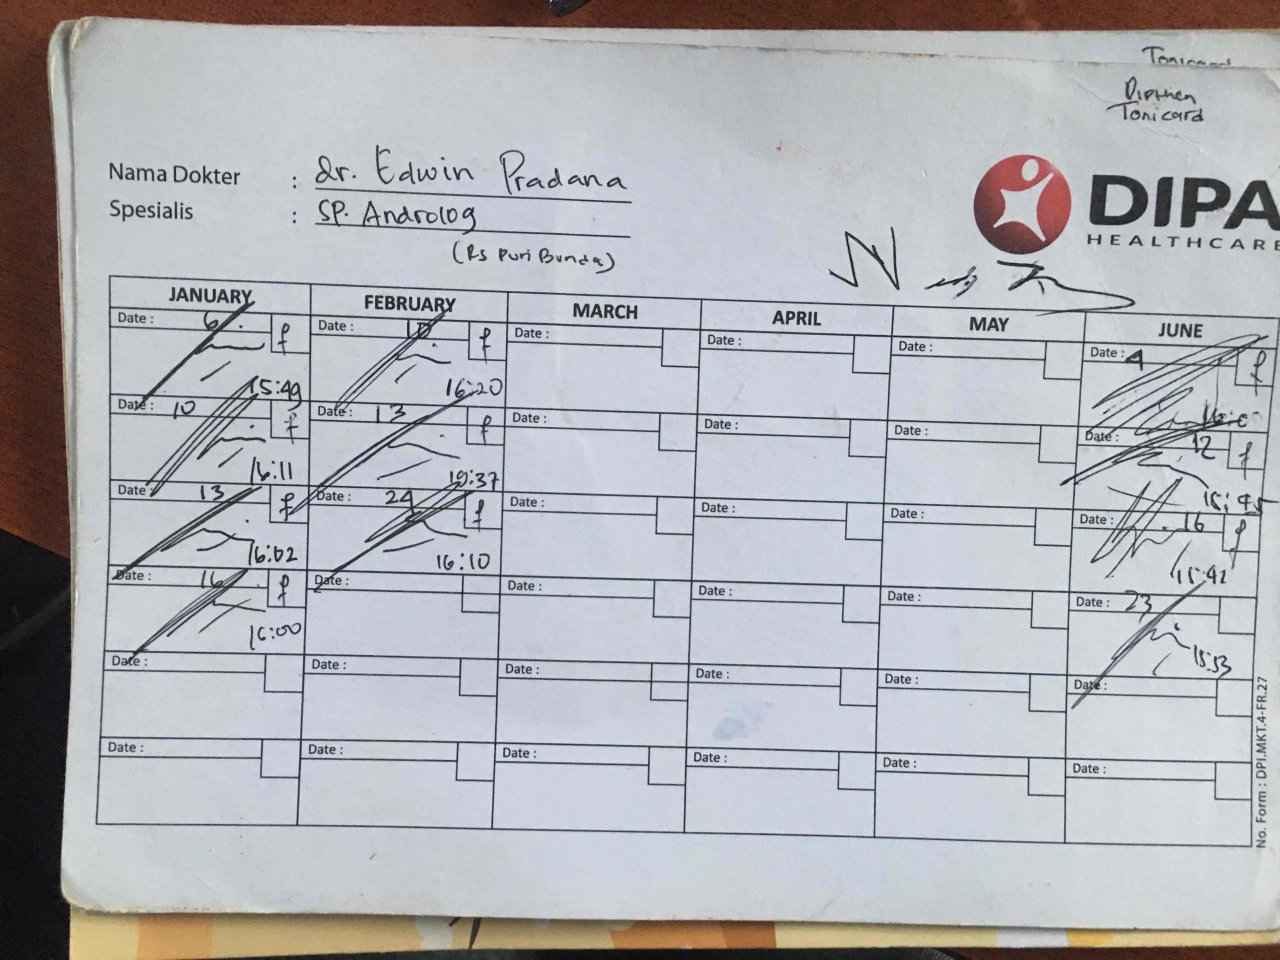 Tonicard
Dipthen
Tonicard
Nama Dokter : dr. Edwin Pradana
Spesialis : SP. Androlog
(Rs Puri Bunda)
DIPA
HEALTHCARE
JANUARY FEBRUARY MARCH APRIL MAY JUNE
Date : 6 f Date : 10 f Date : Date : Date : Date : 4 f
15:49 16:20
Date : 10 f Date : 13 f Date : Date : Date : Date : 12 f
16:11 19:37 15:45
Date : 13 f Date : 24 f Date : Date : Date : Date : 16 f
16:02 16:10 15:42
Date : 16 f Date : Date : Date : Date : Date : 23
16:00 15:53
Date : Date : Date : Date : Date : Date :
Date : Date : Date : Date : Date : Date :
No. Form : DPI.MKT.4-FR.27